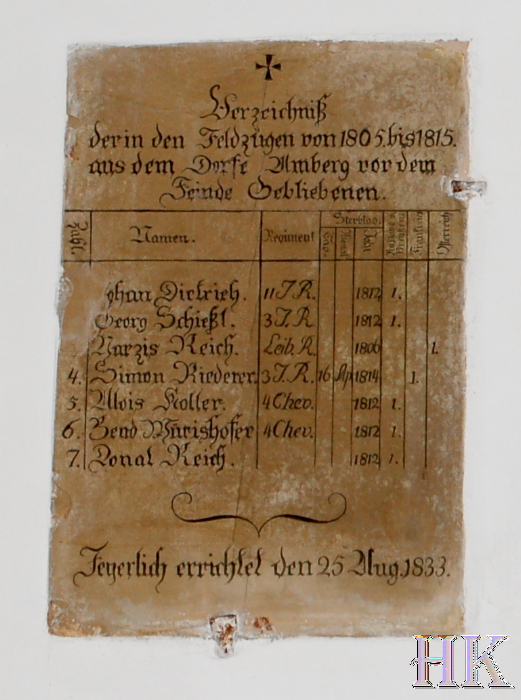 Verzeichniß
der in den Feldzügen von 1805. bis 1815.
aus dem Dorfe Amberg vor dem
Feinde Gebliebenen.
Zahl. Namen. Regiment Sterbtag. Tag Monat Jahr Rußland Frankreich Österreich
Johan Dietrich. 11 J.R. 1812 1.
Georg Schießl. 3 J.R. 1812 1.
Narzis Reich. Leib. R. 1806 1.
4. Simon Riederer. 3 J.R. 16 Ap 1814 1.
5. Alois Koller. 4 Chev. 1812 1.
6. Bend Würishofer 4 Chev. 1812 1.
7. Donat Reich. 1812 1.
Feyerlich errichtet den 25 Aug. 1833.
HK